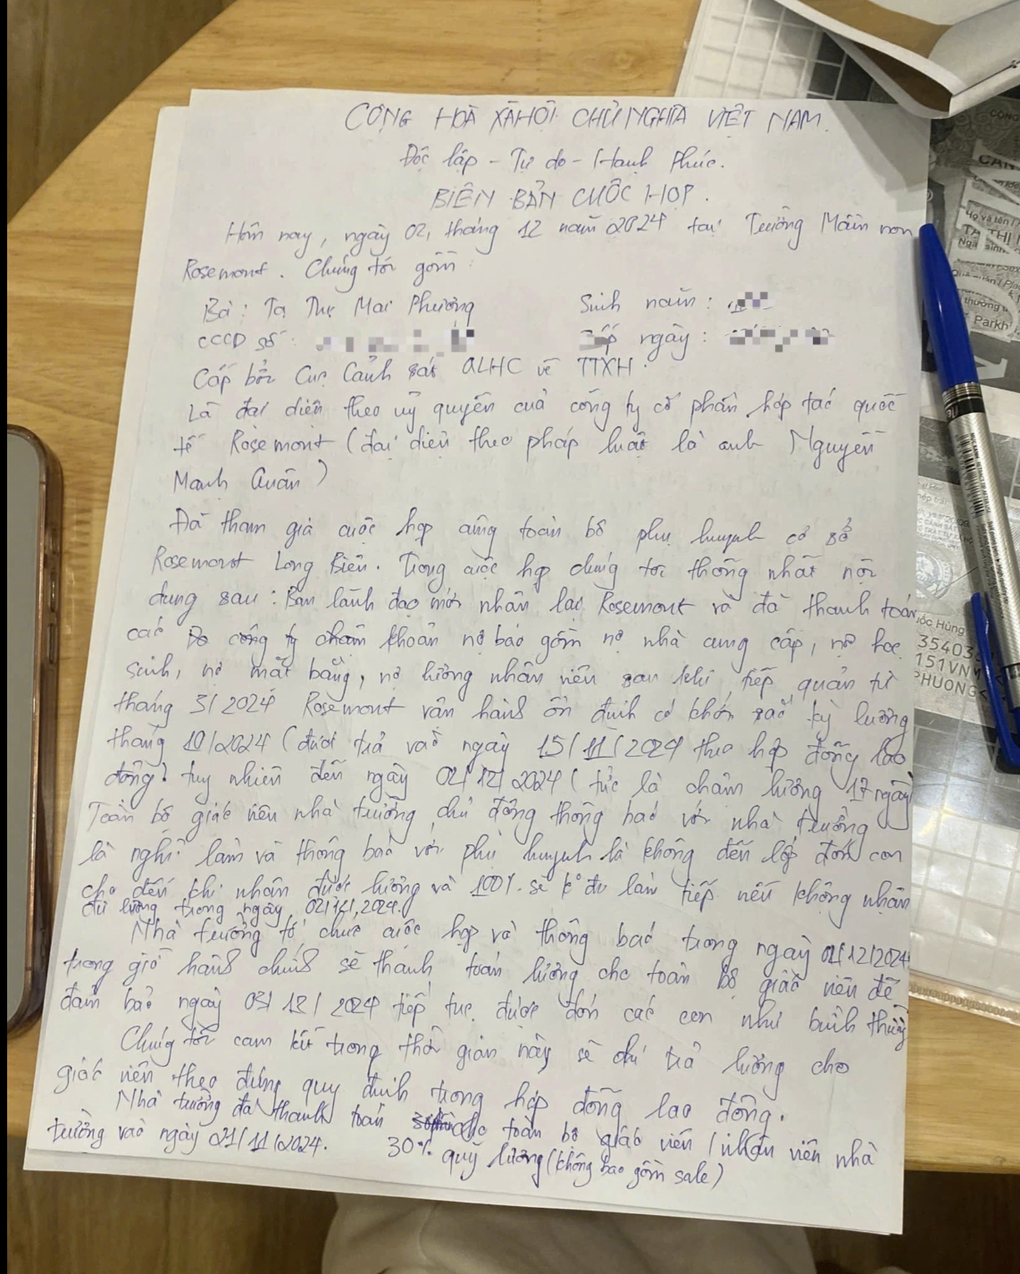 CỘNG HOÀ XÃ HỘI CHỦ NGHĨA VIỆT NAM.
Độc lập - Tự do - Hạnh phúc.
BIÊN BẢN CUỘC HỌP.
Hôm nay, ngày 02, tháng 12 năm 2024 tại Trường Mầm non
Rosemont. Chúng tôi gồm:
Bà: Tạ Thị Mai Phương Sinh năm:
CCCD số: Cấp ngày:
Cấp bởi Cục Cảnh sát QLHC về TTXH.
Là đại diện theo uỷ quyền của công ty cổ phần hợp tác quốc
tế Rosemont (đại diện theo pháp luật là anh Nguyễn
Mạnh Quân)
Đã tham gia cuộc họp cùng toàn bộ phụ huynh cơ sở
Rosemont Long Biên. Trong cuộc họp chúng tôi thống nhất nội
dung sau: Ban lãnh đạo mới nhận lại Rosemont và đã thanh toán
các khoản nợ bao gồm nợ nhà cung cấp, nợ học
sinh, nợ mặt bằng, nợ lương nhân viên sau khi tiếp quản từ
tháng 3/2024 Rosemont vận hành ổn định có kỳ lương
tháng 10/2024 (được trả vào ngày 15/11/2024 theo hợp đồng lao
động) tuy nhiên đến ngày 02/12/2024 (tức là chậm lương 17 ngày)
Toàn bộ giáo viên nhà trường chủ động thông báo với nhà trường
là nghỉ làm và thông báo với phụ huynh là không đến lớp đón con
cho đến khi nhận được lương và 100% sẽ k° đi làm tiếp nếu không nhận
đủ lương trong ngày 02/12/2024.
Nhà trường tổ chức cuộc họp và thông báo trong ngày 02/12/2024
trong giờ hành chính sẽ thanh toán lương cho toàn bộ giáo viên để
đảm bảo ngày 03/12/2024 tiếp tục được đón các con như bình thường
Chúng tôi cam kết trong thời gian này sẽ chi trả lương cho
giáo viên theo đúng quy định trong hợp đồng lao động.
Nhà trường đã thanh toán cho toàn bộ giáo viên / nhân viên nhà
trường vào ngày 21/11/2024. 30% quỹ lương (không bao gồm sale)
CĂN
Họ và tên /
TẠ THỊ
thường
Parkh
Hùng
35403
151VNM
PHUONG